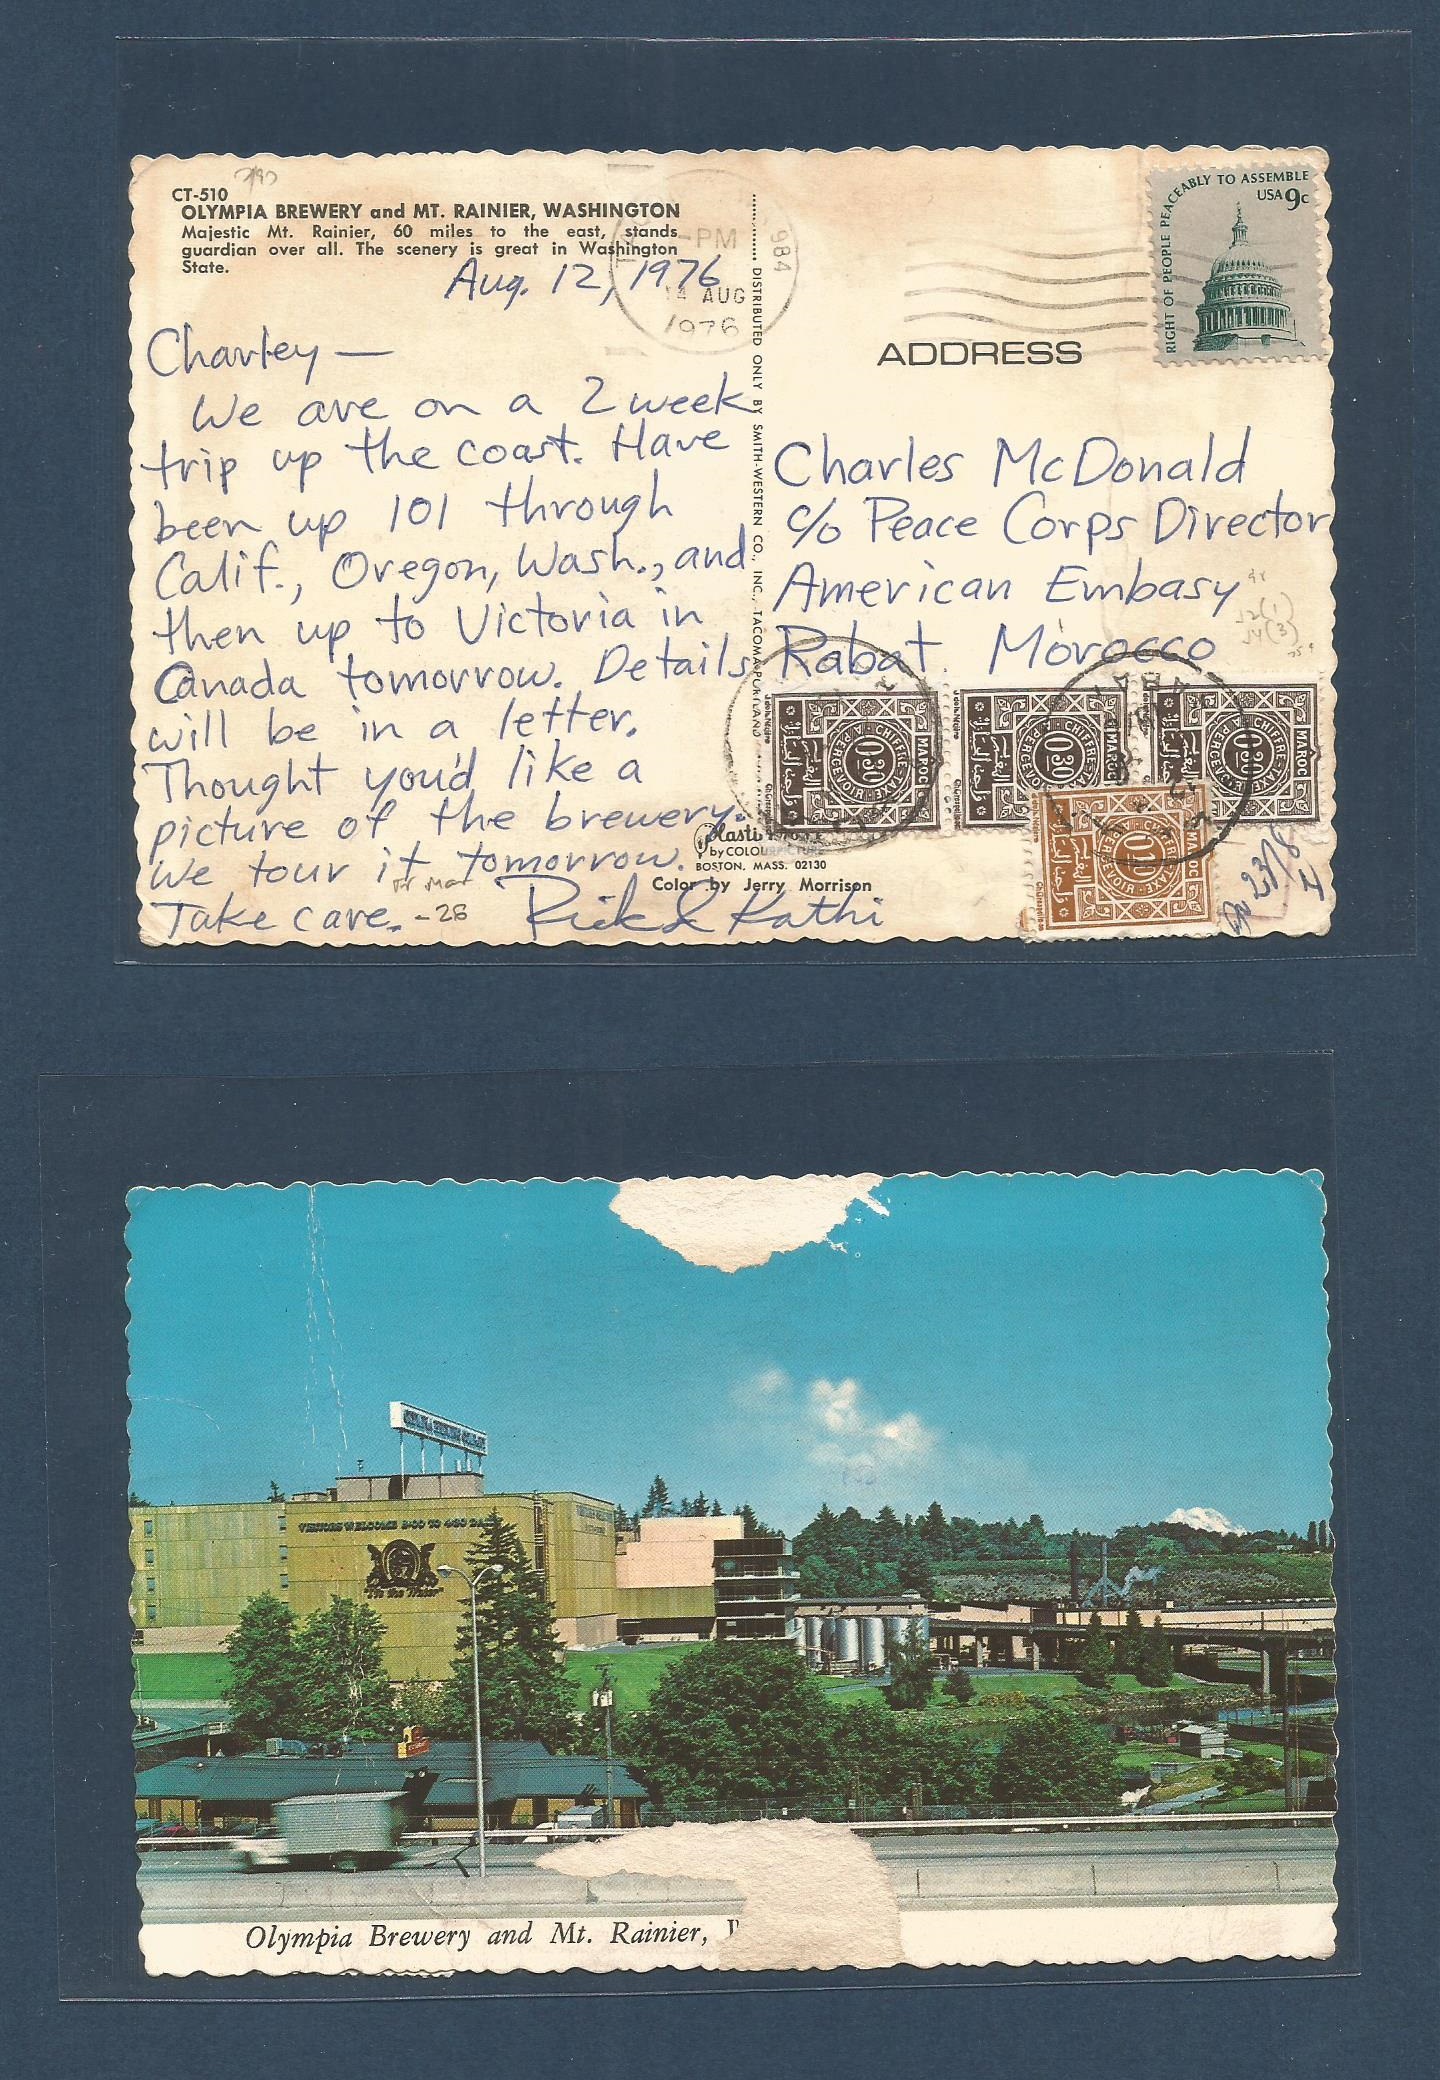 CT-510
OLYMPIA BREWERY and MT. RAINIER, WASHINGTON
Majestic Mt. Rainier, 60 miles to the east, stands
guardian over all. The scenery is great in Washington
State.
Aug. 12, 1976
Charley —
We are on a 2 week
trip up the coast. Have
been up 101 through
Calif., Oregon, Wash., and
then up to Victoria in
Canada tomorrow. Details
will be in a letter.
Thought you'd like a
picture of the brewery.
We tour it tomorrow.
Take care. -26
Rick & Kathi
by COLOURPICTURE
BOSTON, MASS. 02130
Color by Jerry Morrison
DISTRIBUTED ONLY BY SMITH-WESTERN CO., INC., TACOMA-PORTLAND
PM
984
14 AUG
1976
RIGHT OF PEOPLE PEACEABLY TO ASSEMBLE
USA 9c
ADDRESS
Charles McDonald
c/o Peace Corps Director
American Embasy
Rabat. Morocco
MAROC
CHIFFRE-TAXE
A PERCEVOIR
0,30
MAROC
CHIFFRE-TAXE
A PERCEVOIR
0,30
MAROC
CHIFFRE-TAXE
A PERCEVOIR
0,30
MAROC
CHIFFRE-TAXE
A PERCEVOIR
0,10
VISITORS WELCOME 8:00 TO 4:30 DAILY
"It's the Water"
Olympia Brewery and Mt. Rainier, W